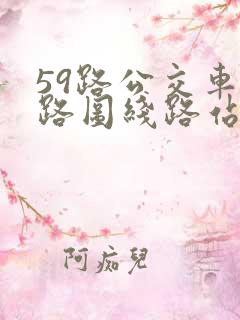 59路公交車
路圖綫路佔
阿痴兒